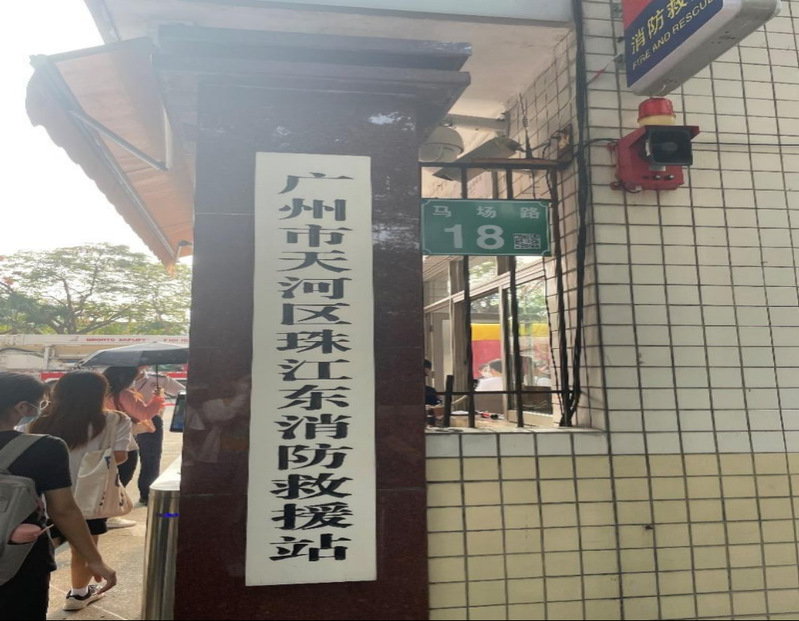 广州市天河区珠江东消防救援站
马场路
18
消防救
FIRE AND RESCUE